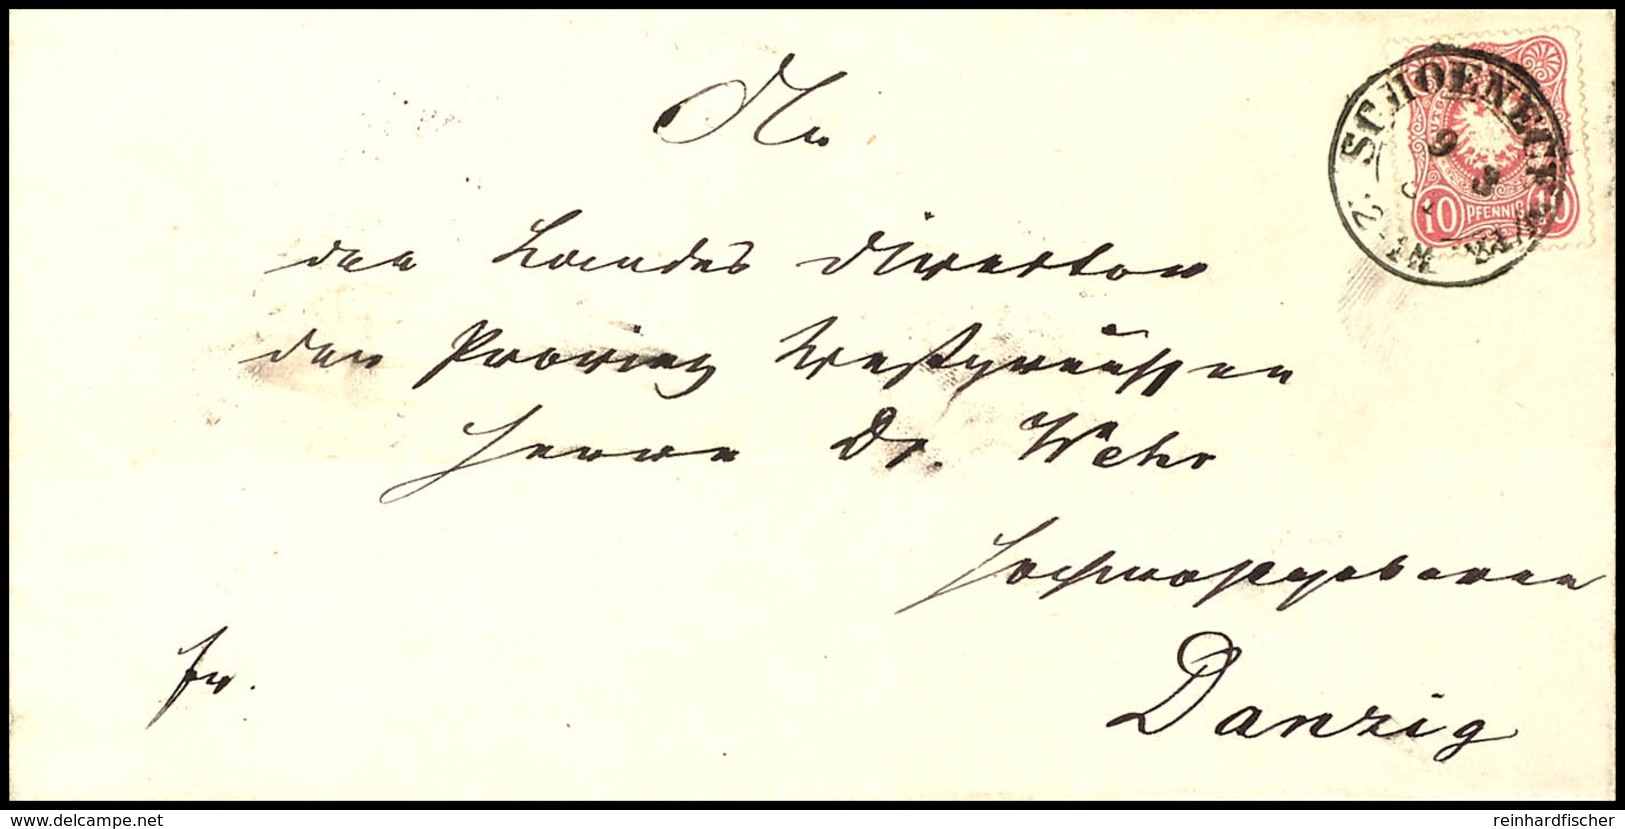 An
den Landes Director
der Provinz Westpreußen
Herrn Dr. Wehr
Hochwohlgeboren
fr.
Danzig
SCHOENECK
9 3
10 PFENNIG 10
www.delcampe.net
reinhardfischer